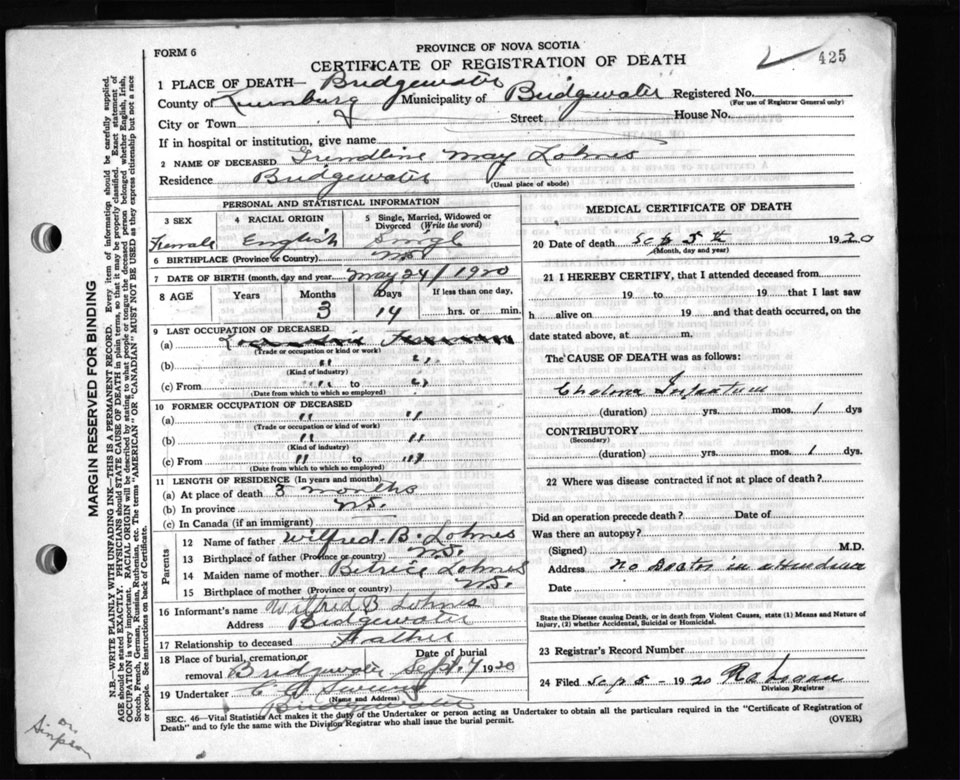 FORM 6
PROVINCE OF NOVA SCOTIA
CERTIFICATE OF REGISTRATION OF DEATH
425
1 PLACE OF DEATH— Bridgewater
County of Lunenburg Municipality of Bridgewater Registered No.
(For use of Registrar General only)
City or Town Street House No.
If in hospital or institution, give name
2 NAME OF DECEASED May Lohnes
Residence Bridgewater
(Usual place of abode)
PERSONAL AND STATISTICAL INFORMATION
3 SEX 4 RACIAL ORIGIN 5 Single, Married, Widowed or Divorced (Write the word)
Female English Singl
6 BIRTHPLACE (Province or Country) N.S.
7 DATE OF BIRTH (month, day and year) May 24/1920
8 AGE Years Months Days If less than one day,
3 14 hrs. or min.
9 LAST OCCUPATION OF DECEASED
(a)
(Trade or occupation or kind or work)
(b) " "
(Kind of industry)
(c) From " to "
(Date from which to which so employed)
10 FORMER OCCUPATION OF DECEASED
(a) " "
(Trade or occupation or kind or work)
(b) " "
(Kind of industry)
(c) From " to "
(Date from which to which so employed)
11 LENGTH OF RESIDENCE (In years and months)
(a) At place of death 3 months
(b) In province N.S.
(c) In Canada (if an immigrant)
Parents
12 Name of father Wilfred. B. Lohnes
13 Birthplace of father (Province or country) N.S.
14 Maiden name of mother. Lohnes
15 Birthplace of mother (Province or country) N.S.
16 Informant's name Wilfred B Lohnes
Address Bridgewater
17 Relationship to deceased Father
18 Place of burial, cremation, or removal Bridgewater Date of burial Sept. 7 1920
19 Undertaker
(Name and Address)
Bridgewater
MEDICAL CERTIFICATE OF DEATH
20 Date of death Sep 5th 1920
(Month, day and year)
21 I HEREBY CERTIFY, that I attended deceased from
19 to 19 that I last saw
h alive on 19 and that death occurred, on the
date stated above, at m.
The CAUSE OF DEATH was as follows:
Cholera Infantum
(duration) yrs. mos. 1 dys
CONTRIBUTORY
(Secondary)
(duration) yrs. mos. 1 dys.
22 Where was disease contracted if not at place of death?
Did an operation precede death? Date of
Was there an autopsy?
(Signed) M.D.
Address No Doctor in attendance
Date
State the Disease causing Death, or in death from Violent Causes, state (1) Means and Nature of Injury, (2) whether Accidental, Suicidal or Homicidal.
23 Registrar's Record Number
24 Filed Sep 5- 1920
Division Registrar
SEC. 46—Vital Statistics Act makes it the duty of the Undertaker or person acting as Undertaker to obtain all the particulars required in the "Certificate of Registration of
Death" and to fyle the same with the Division Registrar who shall issue the burial permit.
(OVER)
MARGIN RESERVED FOR BINDING
N.B.—WRITE PLAINLY WITH UNFADING INK—THIS IS A PERMANENT RECORD. Every item of information should be carefully supplied.
AGE should be stated EXACTLY. PHYSICIANS should STATE CAUSE OF DEATH in plain terms, so that it may be properly classified. Exact statement of
OCCUPATION is very important. RACIAL ORIGIN will be described by stating to what people or tongue the deceased person belonged whether English, Irish,
Scotch, French, German, Russian, Ruthenian, etc. The terms "AMERICAN" OR "CANADIAN" MUST NOT BE USED as they express citizenship but not a race
or people. See instructions on back of Certificate.
or
Simpson